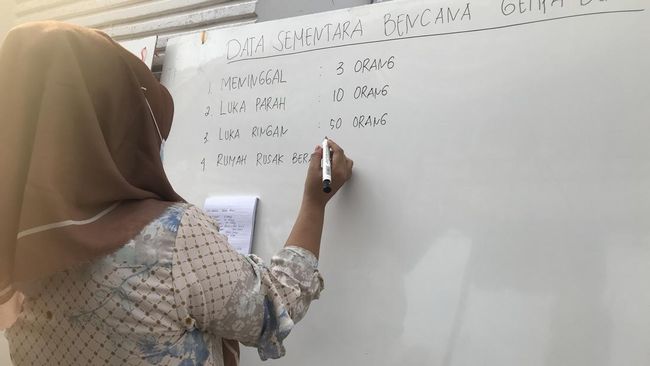 DATA SEMENTARA BENCANA GEMPA
1. MENINGGAL : 3 ORANG
2. LUKA PARAH : 10 ORANG
3. LUKA RINGAN : 50 ORANG
4. RUMAH RUSAK BERA